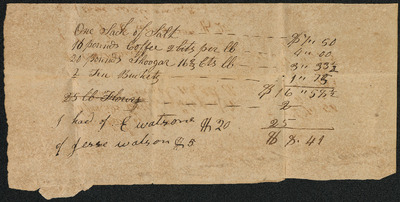 One Sack of Salt — $7" 50
16 pounds Coffee 2 bits per lb — 4" 00
20 pounds Shoogar 16⅔ cts lb — 3" 33⅓
2 Tin Buckets — 1" 75
$ 16 "58⅓
25 lb Flower 2
I had of E Watson $20 25
of Jesse Watson $5 $ 8. 41